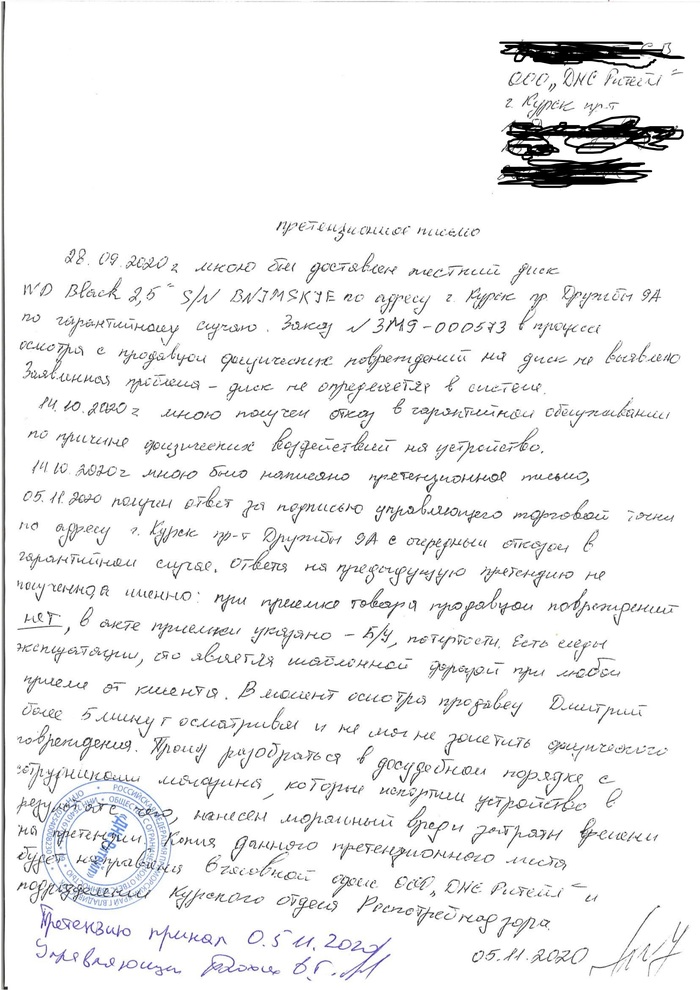 С В
ООО „ДНС Ритейл"
г. Курск пр-т
претензионное письмо
28.09.2020 г мною был доставлен жесткий диск
WD Black 2,5" S/N по адресу г. Курск пр Дружбы 9А
по гарантийному случаю. Заказ в процессе
осмотра с продавцом физических повреждений на диск не выявлено
Заявленная проблема – диск не определяется в системе.
14.10.2020 г мною получен отказ в гарантийном обслуживании
по причине физических воздействий на устройство.
14.10.2020 г мною было написано претензионное письмо,
05.11.2020 получил ответ за подписью управляющего торговой точки
по адресу г. Курск пр-т Дружбы 9А с очередным отказом в
гарантийном случае. Ответа на предыдущую претензию не
получено, а именно: при приемке товара продавцом повреждений
нет, в акте приемки указано – Б/У, потертости. Есть следы
эксплуатации, что является шаблонной фразой при любом
приеме от клиента. В момент осмотра продавец Дмитрий
более 5 минут осматривал и не мог не заметить физического
повреждения. Прошу разобраться в досудебном порядке с
сотрудниками магазина, которые испортили устройство в
результате чего, нанесен моральный вред и затраты времени
на претензии. Копия данного претензионного листа
будет направлена в головной офис ООО „ДНС Ритейл" и
подразделение Курского отдела Роспотребнадзора.
Претензию принял 0.5 11.2020
Управляющий В.Г.
05.11.2020